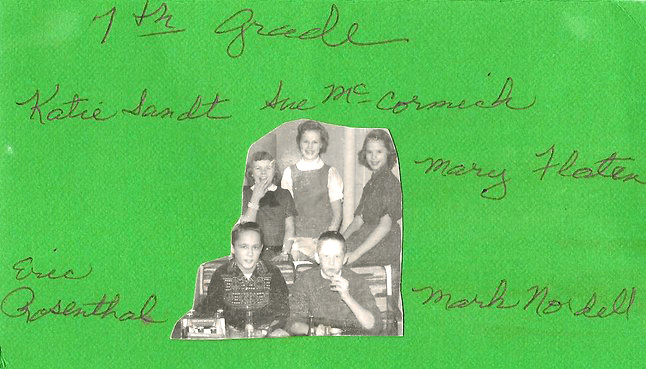 7th Grade
Katie Sandt Sue McCormick
Mary Floten
Eric
Rosenthal
Mark Nordell